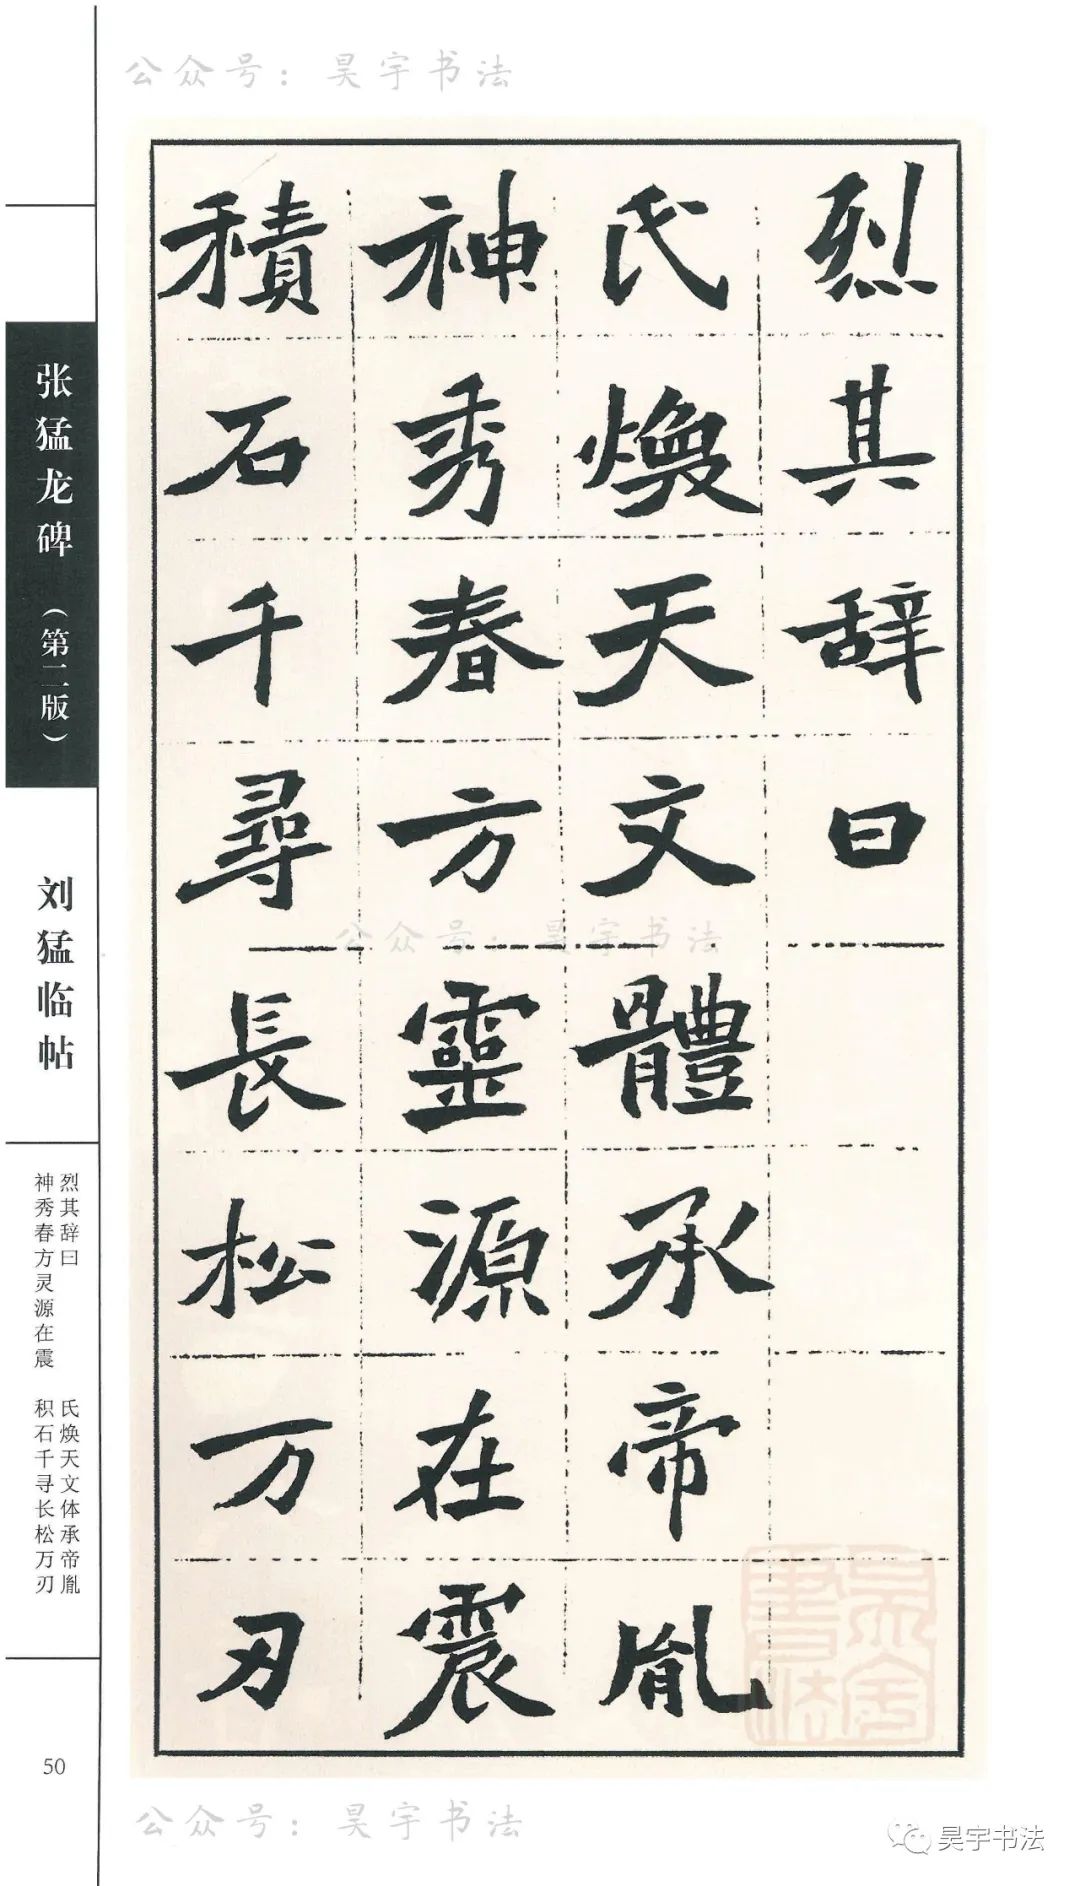 公众号：昊宇书法
烈其辞曰
氏焕天文體承帝胤
神秀春方靈源在震
積石千尋長松万刃
张猛龙碑（第二版）
刘猛临帖
烈其辞曰　氏焕天文体承帝胤
神秀春方灵源在震　积石千寻长松万刃
50
公众号：昊宇书法
公众号：昊宇书法
昊宇书法
昊宇书法